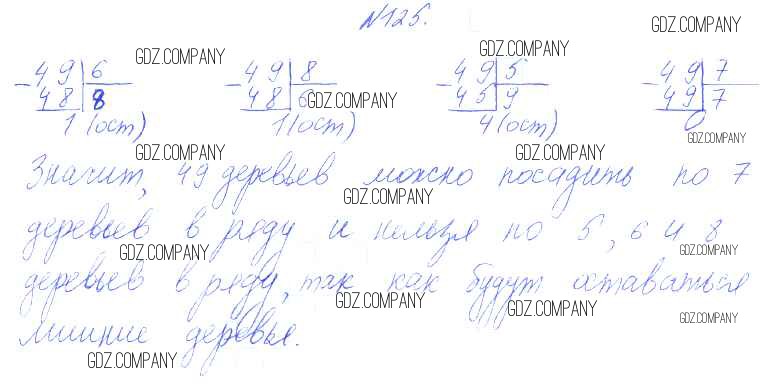 №125.
49 | 6   49 | 8   49 | 5   49 | 7
48 | 8   48 | 6   45 | 9   49 | 7
1 (ост)   1 (ост)   4 (ост)   0
Значит, 49 деревьев можно посадить по 7
деревьев в ряду и нельзя по 5, 6 и 8
деревьев в ряду, так как будут оставаться
лишние деревья.
GDZ.COMPANY
GDZ.COMPANY
GDZ.COMPANY
GDZ.COMPANY
GDZ.COMPANY
GDZ.COMPANY
GDZ.COMPANY
GDZ.COMPANY
GDZ.COMPANY
GDZ.COMPANY
GDZ.COMPANY
GDZ.COMPANY
GDZ.COMPANY
GDZ.COMPANY